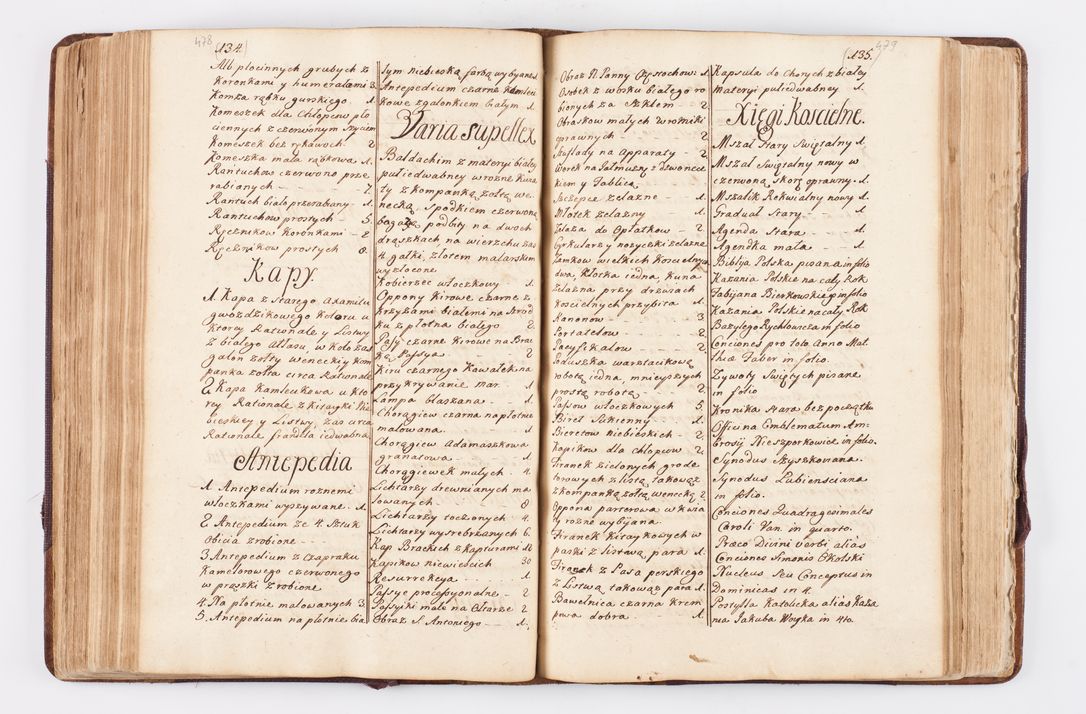 478
134.
Alb płocinnych grubych z
koronkami y humerałami 3.
Komza rąbku gurskiego 1.
Komeszek dla Chłopcow pło
ciennych z czerwonym szyciem
Komeszek bez rękawow 2
Komeszka mała rąbkowa 1.
Rańtuchow czerwono prze
rabianych 7.
Rantuch biało przerabiany 1.
Rantuchow prostych 5.
Ręcznikow koronkami 2
Ręcznikow prostych 8.
Kapy.
1. Kapa z Starego Axamitu
gwozdzikowego koloru u
ktorey Rationale y Listwy
z białego Atłasu, w koło zas
galon zołty wenecki y kom
panka zołta circa Rationale
2. Kapa Kamleckowa u kto
rey Rationale z kitayki Nie
bieskiey y Listwy, zas circa
Rationale frandzla iedwabna
Antepedia
1. Antepedium roznemi
włoczkami wyszywane 1.
2. Antepedium ze 4. Sztuk
obicia zrobione
3. Antepedium z Czapraku
kamelorowego czerwonego
w prązki zrobione
4. Na płotnie malowanych 3.
5. Antepedium na płotnie bia
łym niebieską farbą wybijane 1.
Antepedium czarne kamleci
kowe z galonkiem białym 1.
Varia supellex
Baldachim z materyi białey
pułiedwabney w rozne kwia
ty z kompanką zołtą we=
necką, Spodkiem czerwoną
bagazyą podbity na dwoch
drązkach na wierzchu zas
4. gałki, złotem malarskim
wyzłocone
Kobierzec włoczkowy 1.
Oppony kirowe czarne z
krzyżami białemi na Srod
ku z płotna białego 2.
Passy czarne kirowe na Brac
ką Passya 2
Kiru czarnego kowałek na
przykrywanie mar 1.
Lampa blaszana 1.
Chorągiew czarna na płotnie
malowana 1.
Chorągiew Adamaszkowa
granatowa 1.
Chorągiewek małych 4.
Lichtarzy drewnianych ma
lowanych 8
Lichtarzy toczonych 4.
Lichtarzy wysrebrzanych 6.
Kap Brackich z kapturami 10
Kapikow niewiescich 30
Resurrekcya 1.
Passye processyonalne 2
Passyiki małe na Ołtarze 2
Obraz S. Antoniego 1.
479
135.
Obraz N. Panny Częstochow: 1.
Osobek z wosku białego ro
bionych za Szkłem 2.
Obraskow małych w ramki
oprawnych 2
Szuflady na Apparaty 2.
Worek na Jałmuznę z dzwonecz
kiem y Tablicą
Szczypce zelazne 1.
Młotek zelazny 1.
Zelaza do Opłatkow 2.
Cyrkularzy nozyczki zelazne
Zamkow wielkich Koscielnych
dwa, Kłotka iedna, kuna
zelazna przy drzwiach
koscielnych przybita 1.
Kanonow 3
Portatelow 2.
Pacyfikałow 2.
Poduszka warstacikową
robotą iedna, mnieyszych
prostą robotą 2.
Passow włoczkowych 5.
Biret Sukienny 1.
Bieretow niebieskich 2
Kapikow dla Chłopcow 2.
Firanek zielonych grode
torowych z listą takowąż
z kompanką zołtą wenecką 2.
Oppona parterowa w kwia
ty rozne wybijana
Firanek kitaykowych w
paski z listwą, para 1.
Firanek z Pasa perskiego
z Listwą takowąż para 1.
Bawełnica czarna krem
powa dobra 1.
Kapsuła do Chorych z białey
materyi pułiedwabney 1.
Xięgi Koscielne.
Mszał Stary Swiętalny 1.
Mszał Swiętalny nowy w
czerwoną skorę oprawny 1.
Mszalik Rekwialny nowy 1.
Graduał Stary 1.
Agenda Stara 1.
Agendka mała 1.
Biblya Polska pisana in folio
Kazania Polskie na cały Rok
Fabijana Bierkowskiego in folio
Kazania Polskie na cały Rok
Bazylego Rychłowicza in folio
Conciones pro toto Anno Mat
thiæ Faber in folio.
Zywoty Swiętych pisane
in folio
Kronika Stara bez początku
Officina Emblematum Am=
brosij Nieszporkowicz in folio.
Synodus Szyszkoviana.
Synodus Lubiensciana
in folio.
Conciones Quadragesimales
Caroli Van. in quarto.
Præco Divini Verbi, alias
Conciones Simonis Okolski
Nucleus Seu Conceptus in
Dominicas in 4.
Postylla Katolicka alias Kaza
nia Jakuba Wuyka in 4to.